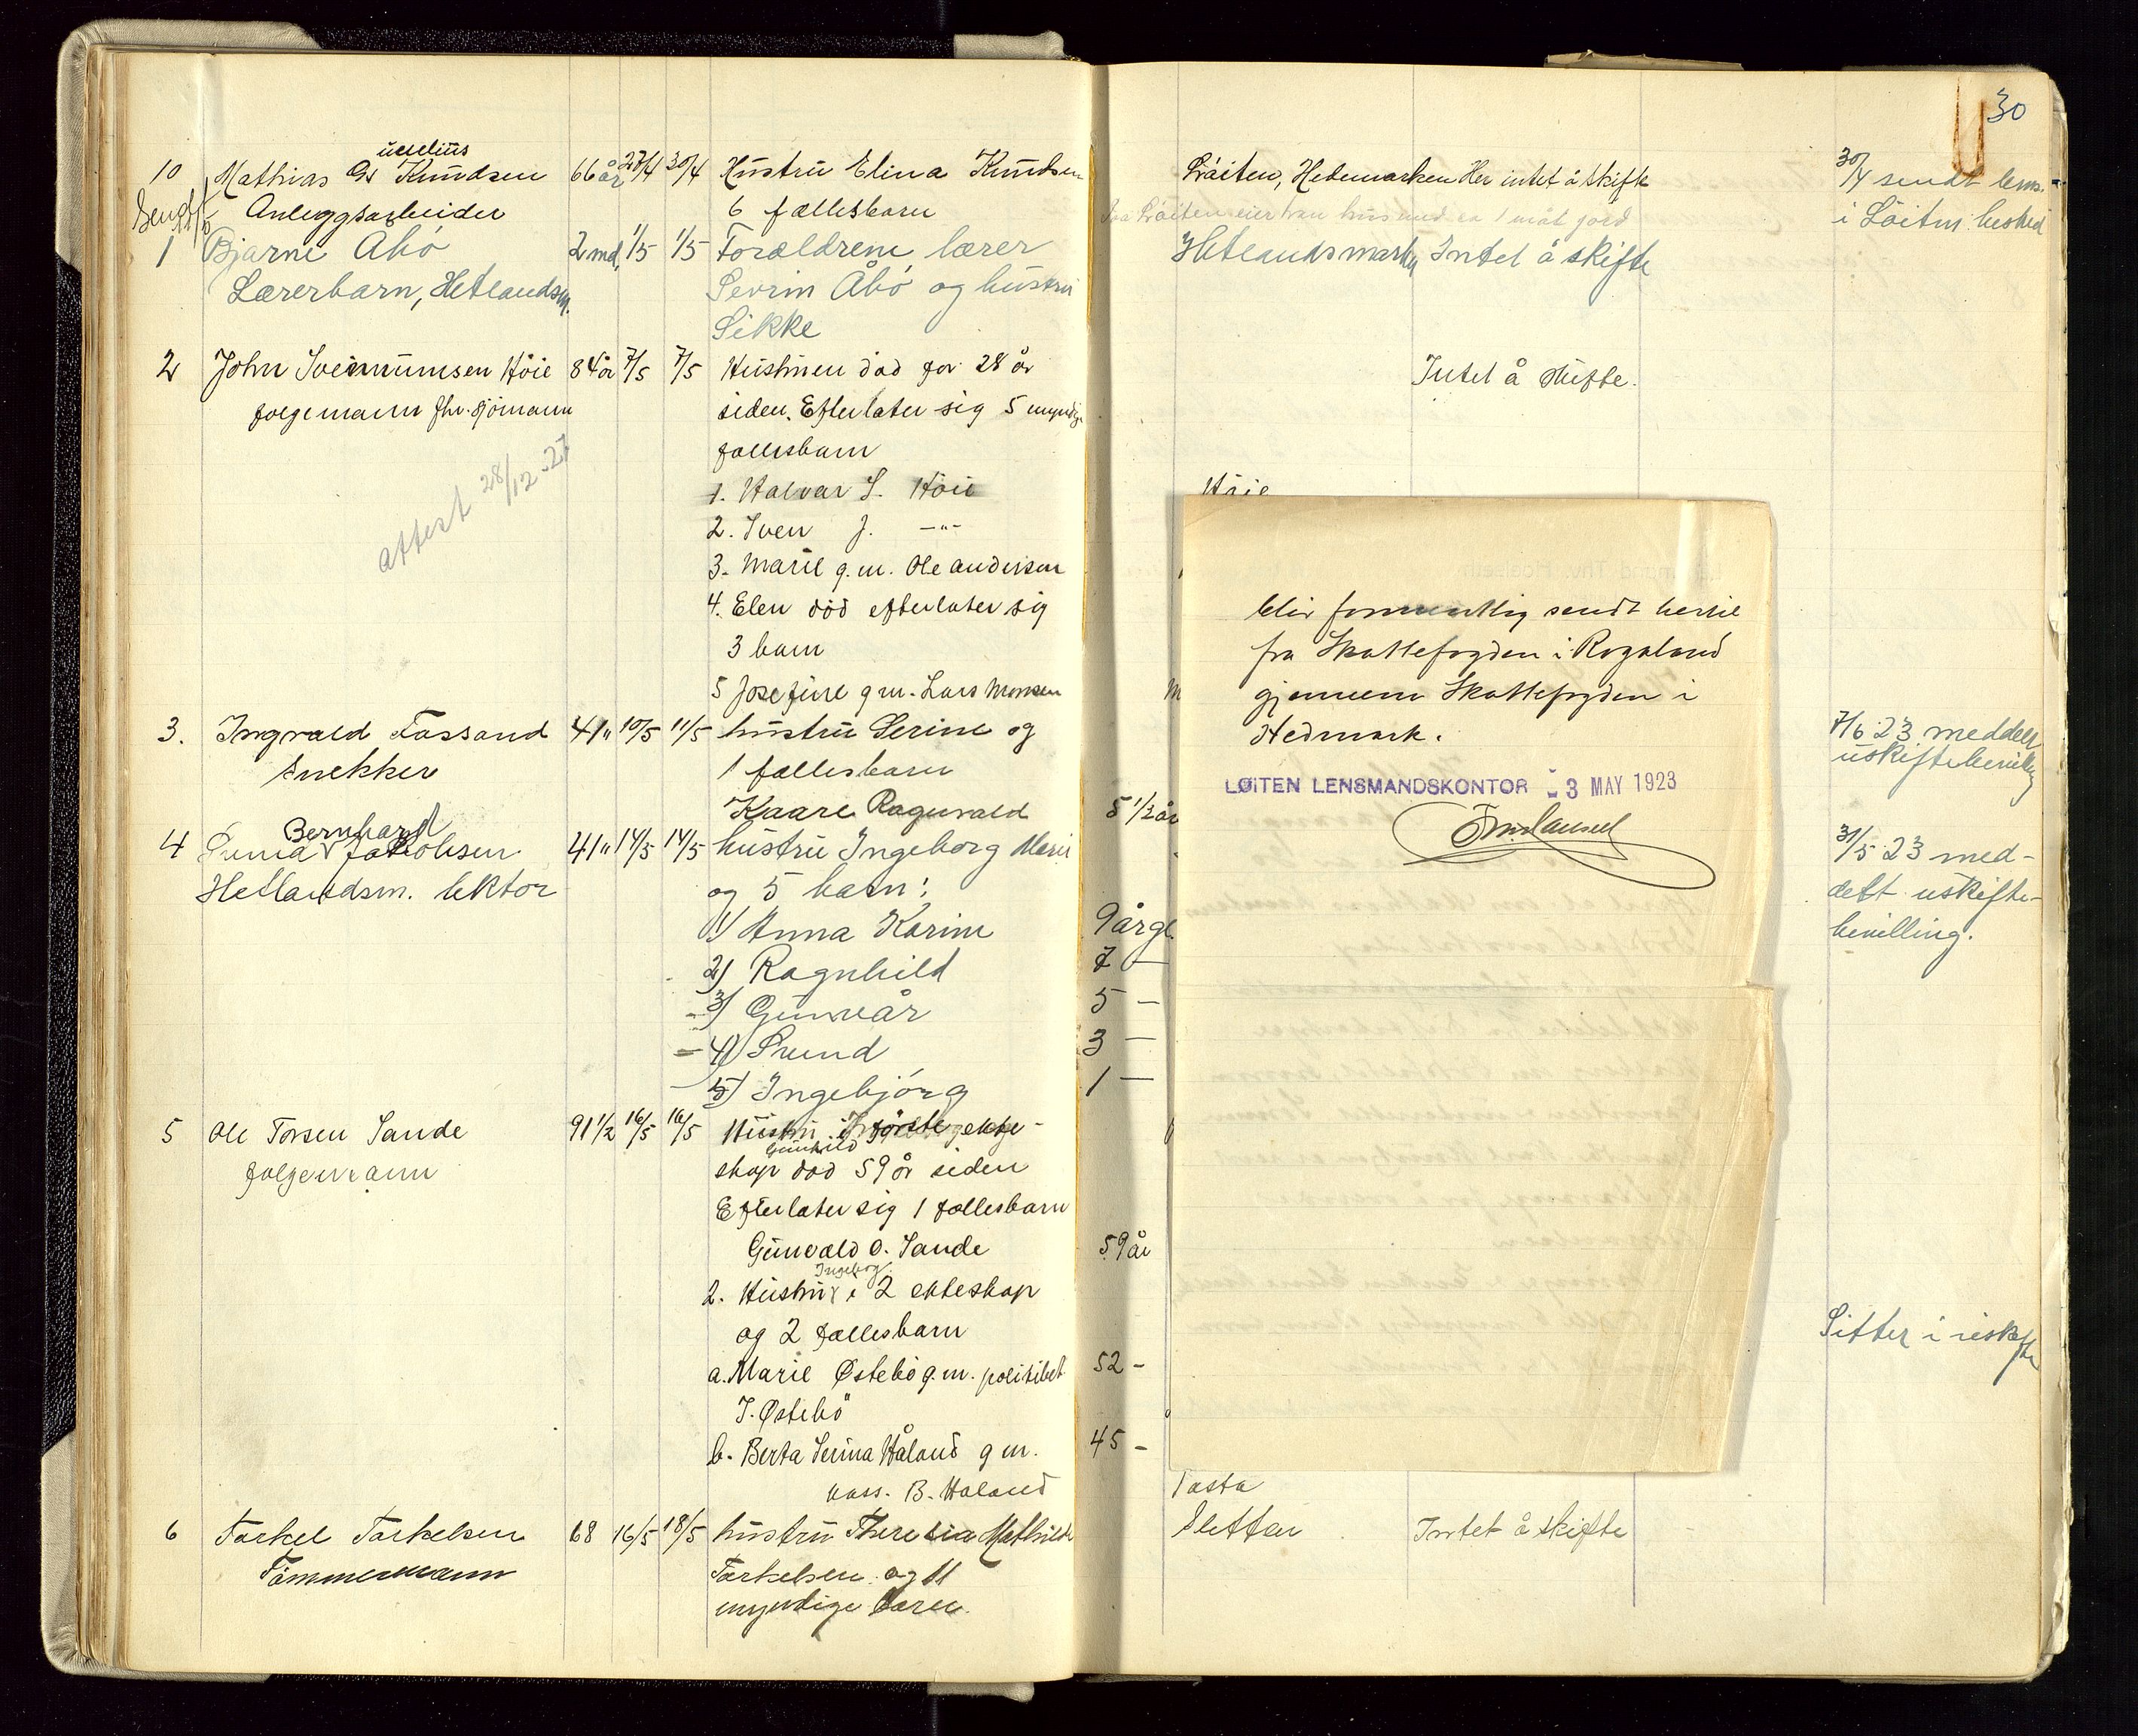 30
10 Mathias Knudsen 66 år 27/4 30/4 Hustru Elina Knudsen
Anleggsarbeider 6 fællesbarn
Løiten, Hedemarken Her intet å skifte
30/4 sendt lens.-
Løiten eier han hus med ca 1 mål jord
i Løiten besked
1 Bjarne Åbö 2 md. 1/5 1/5 Forældrene lærer
Hetlandsmarka Intet å skifte
Lærerbarn, Hetlandsm. Sevrin Åbö og hustru
Sikke
2 John Höie 84 år 7/5 7/5 Hustruen død for 28 år
Intet å skifte.
folgemann fhv. sjömann siden. Efterlater sig 5 myndige
fællesbarn
Attest 28/12-27
1. Halvar S. Höie
Höie
2. Sven J. —"—
3. Marie g.m. Ole Andersen
4. Elen död efterlater sig
3 barn
5 Josefine g m. Lars Monsen
3. Ingvald Tassand 41" 10/5 11/5 hustru Serine og
7/6 23 meddelt
Snekker 1 fællesbarn
uskiftebevilling
Kaare Ragnvald 5 1/2 år
Bernhard
4 Svend Jakobsen 41" 14/5 14/5 hustru Ingeborg Marie
31/5 23 med-
Hetlandsm. lektor og 5 barn:
delt uskifte-
1) Anna Karine 9 år gl.
bevilling.
2) Ragnhild 7 —
3) Gunvår 5 —
4) Svend 3 —
5) Ingebjörg 1 —
5 Ole Torsen Sande 91 1/2 16/5 16/5 Hustru i første ekte-
Gunhild
folgemann skap død 59 år siden
Efterlater sig 1 fællesbarn
Gunvald O. Sande 59 år
Ingeborg
2. Hustru i 2 ekteskap
Sitter i uskifte
og 2 fællesbarn
a. Marie Östebö g.m. politibet. 52 -
T. Östebö
b. Berta Serina Håland g m. 45 -
kass. B. Håland
Tasta
6 Torkel Torkelsen 68 16/5 18/5 hustru Theresia Mathilde
Slettan Intet å skifte
Tömmermann Torkelsen og 11
myndige barn.
blir formentlig sendt hertil
fra Skattefogden i Rogaland
gjennem Skattefogden i
Hedmark.
LØITEN LENSMANDSKONTOR - 3 MAY 1923